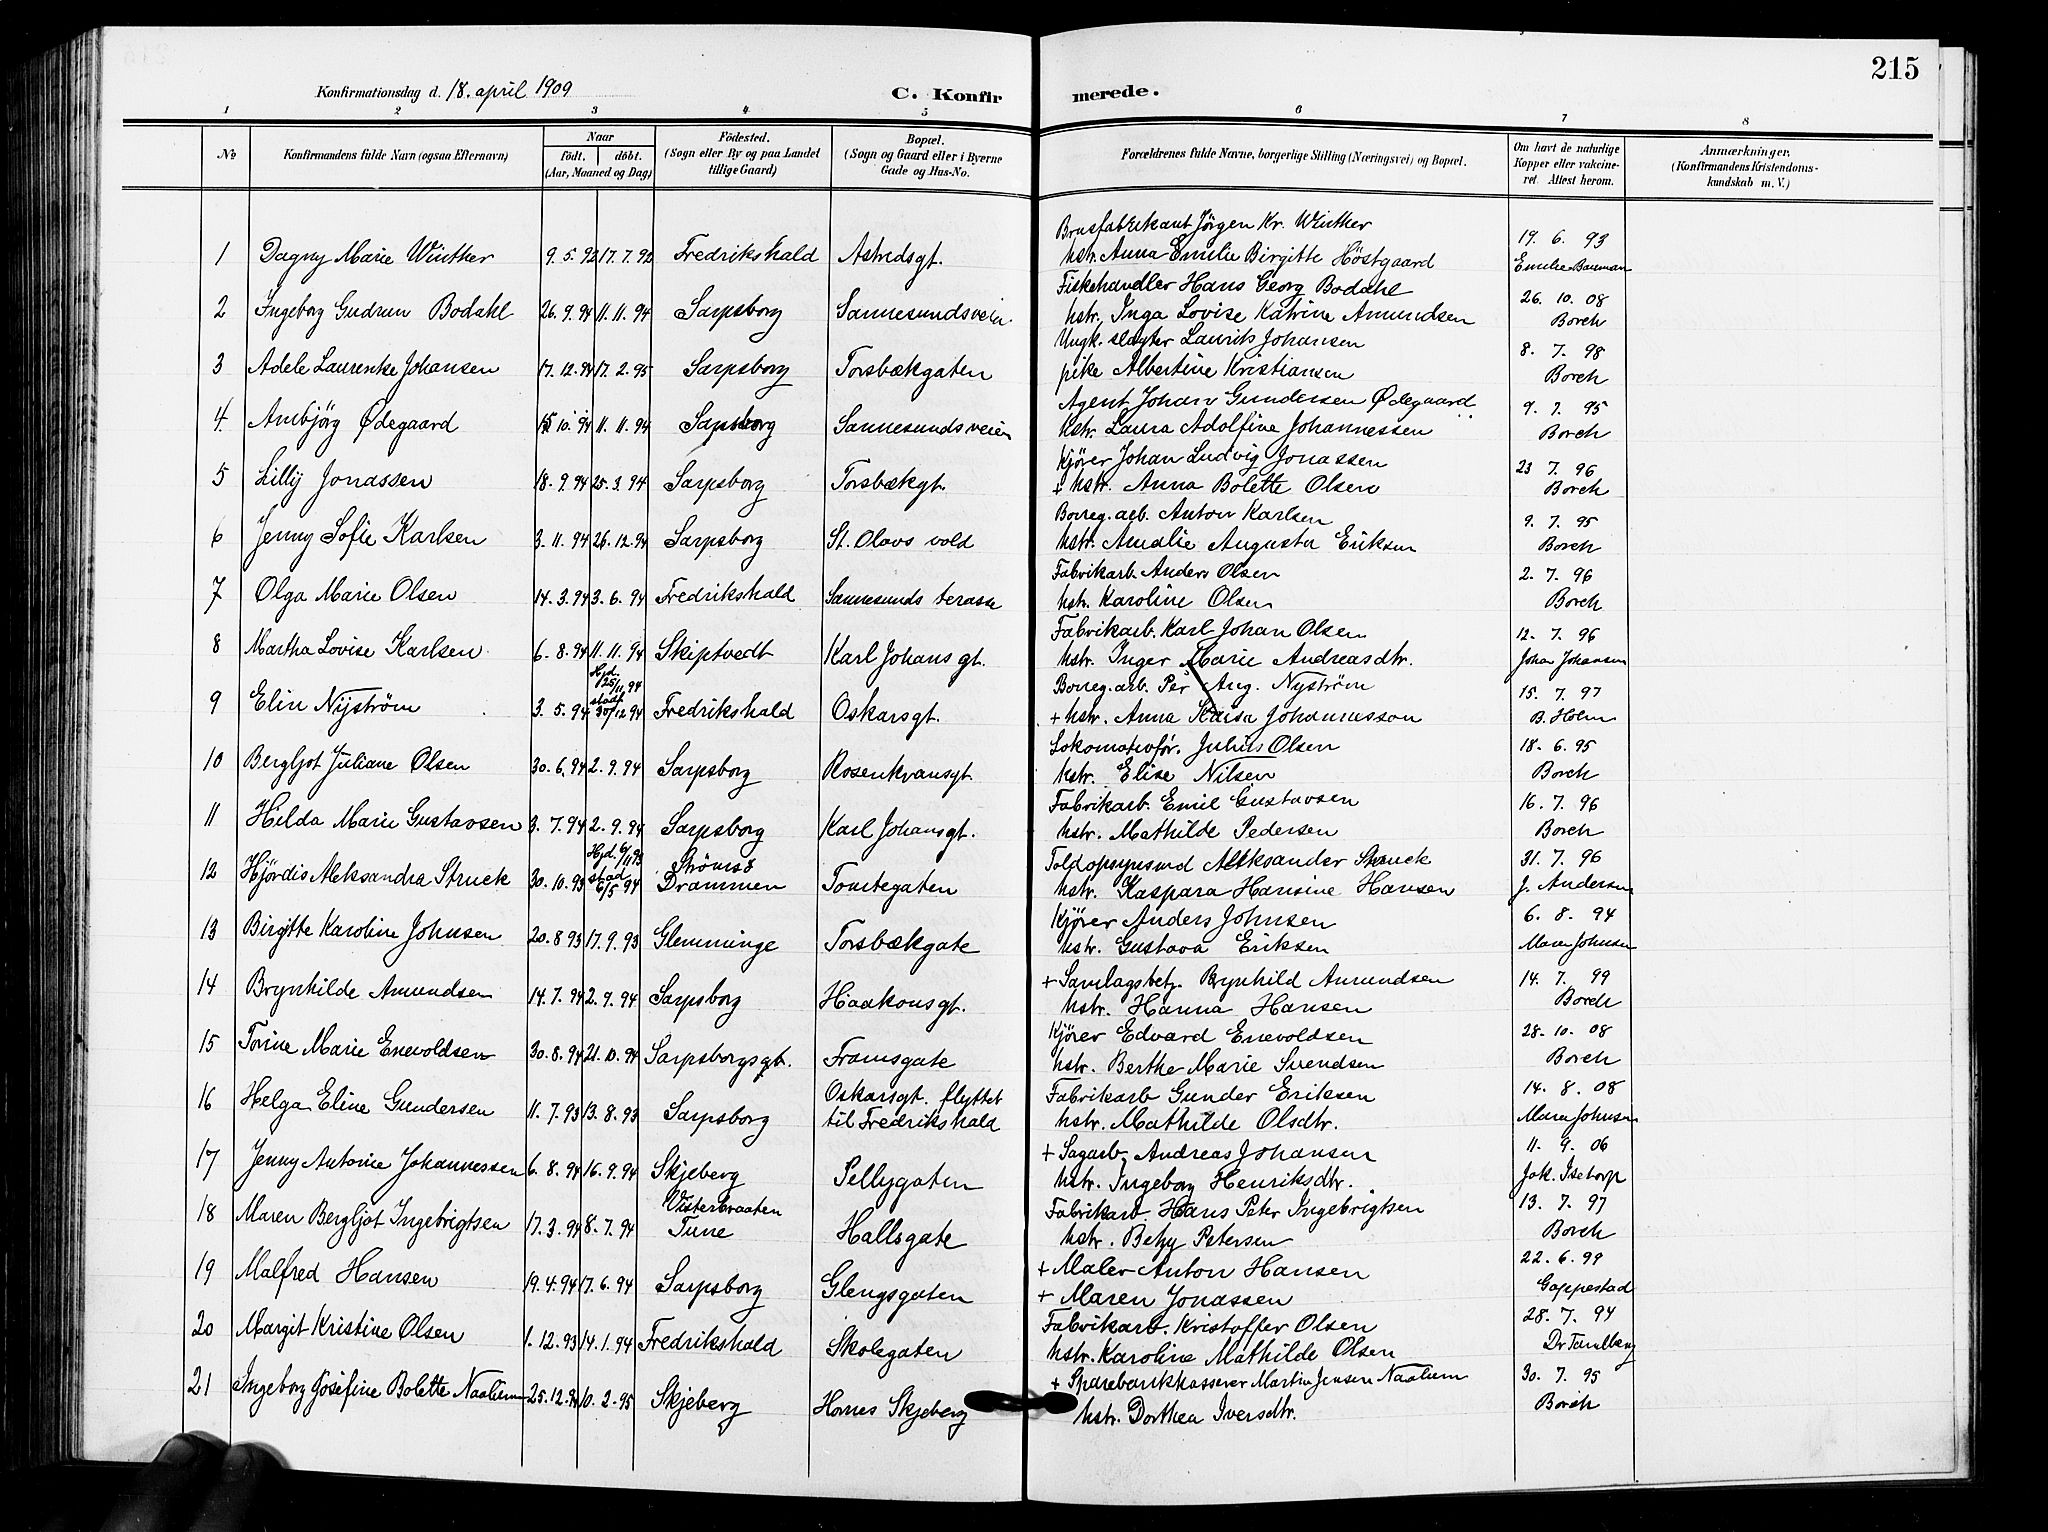 215
Konfirmationsdag d. 18. april 1909
C. Konfirmerede.
1 2 3 4 5 6 7 8
No
Konfirmandens fulde Navn (ogsaa Efternavn)
Naar
født. døbt.
(Aar, Maaned og Dag)
Födested.
(Sogn eller By og paa Landet
tillige Gaard)
Bopæl.
(Sogn og Gaard eller i Byerne
Gade og Hus-No.
Forældrenes fulde Navne, borgerlige Stilling (Næringsvei) og Bopæl.
Om havt de naturlige
Kopper eller vakcine-
ret. Attest herom.
Anmærkninger.
(Konfirmandens Kristendoms-
kundskab m. V.)
Brusfabrikant Jörgen Kr. Winther
1 Dagny Marie Winther 9.5.92 17.7.92 Fredrikshald Astredsgt. hstr. Anna Emilie Birgitte Höstgaard 19.6.93 Emilie
Fiskehandler Hans Georg Bodahl
2 Ingeborg Gudrun Bodahl 26.9.94 11.11.94 Sarpsborg Sannesundsveien hstr. Inga Lovise Katrine Amundsen 26.10.08 Borch
Ungk. slagter Laurits Johansen
3 Adele Laurentse Johansen 17.12.94 17.2.95 Sarpsborg Torsbækgaten pike Albertine Kristiansen 8.7.98 Borch
Agent Johan Gundersen Ødegaard
4 Ambjörg Ødegaard 15.10.94 11.11.94 Sarpsborg Sannesundsveien hstr. Laura Adolfine Johannessen 9.7.95 Borch
Kjörer Johan Ludvig Jonassen
5 Lilly Jonassen 18.9.94 25.3.94 Sarpsborg Torsbækgt. + hstr. Anna Bolette Olsen 23.7.96 Borch
Borreg. arb. Anton Karlsen
6 Jenny Sofie Karlsen 3.11.94 26.12.94 Sarpsborg St. Olavs vold hstr. Amalie Augusta Eriksen 9.7.95 Borch
Fabrikarb. Anders Olsen
7 Olga Marie Olsen 14.3.94 3.6.94 Fredrikshald Sannesunds terasse hstr. Karoline Olsen 2.7.96 Borch
Fabrikarb. Karl Johan Olsen
8 Martha Lovise Karlsen 6.8.94 11.11.94 Skiptvedt Karl Johans gt. hstr. Inger Marie Andreasdtr. 12.7.96 Johan Johansen
Borreg. arb. Per Aug. Nyström
9 Elin Nyström 3.5.94 Hjd. 25/11 94 stadf. 30/12 94 Fredrikshald Oskarsgt. + hstr. Anna Kaisa Johannesson 15.7.97 B. Holm
Lokomotivför. Julius Olsen
10 Bergljot Juliane Olsen 30.6.94 2.9.94 Sarpsborg Rosenkransgt. hstr. Elise Nilsen 18.6.95 Borch
Fabrikarb. Emil Gustavsen
11 Hilda Marie Gustavsen 3.7.94 2.9.94 Sarpsborg Karl Johansgt. hstr. Mathilde Pedersen 16.7.96 Borch
Toldopsynsmd Aleksander Struck
12 Hjördis Aleksandra Struck 30.10.93 Hjd. 6/11 93 stad 6/5 94 Strömsö Drammen Tomtegaten hstr. Kaspara Hansine Hansen 31.7.96 J. Andersen
Kjörer Anders Johnsen
13 Birgitte Karoline Johnsen 20.8.93 17.9.93 Glemminge Torsbækgate hstr. Gustava Eriksen 6.8.94 Maren Johnsen
+ Samlagsbetj. Brynhild Amundsen
14 Brynhilde Amundsen 14.7.94 2.9.94 Sarpsborg Haakonsgt. hstr. Hanna Hansen 14.7.99 Borch
Kjörer Edvard Enevoldsen
15 Torine Marie Enevoldsen 30.8.94 21.10.94 Sarpsborgsgt. Framsgate hstr. Berthe Marie Svendsen 28.10.08 Borch
Fabrikarb Gunder Eriksen
16 Helga Eline Gundersen 11.7.93 13.8.93 Sarpsborg Oskarsgt. flyttet til Fredrikshald hstr. Mathilde Olsdtr. 14.8.08 Maren Johnsen
+ Sagarb. Andreas Johansen
17 Jenny Antonie Johannessen 6.8.94 16.9.94 Skjeberg Pellygaten hstr. Ingeborg Henriksdtr. 11.9.06 Joh. Isetorp
Fabrikarb Hans Peter Ingebrigtsen
18 Maren Bergljot Ingebrigtsen 17.3.94 8.7.94 Visterbraaten Tune Hallsgate hstr. Betzy Petersen 13.7.97 Borch
+ Maler Anton Hansen
19 Malfred Hansen 19.4.94 17.6.94 Sarpsborg Glengsgaten + Maren Jonassen 22.6.99 Gappestad
Fabrikarb. Kristoffer Olsen
20 Margit Kristine Olsen 1.12.93 14.1.94 Fredrikshald Skolegaten hstr. Karoline Mathilde Olsen 28.7.94 Dr Tandberg
+ Sparebankkasserer Martin Jensen Naalum
21 Ingeborg Josefine Bolette Naalum 25.12.94 10.2.95 Skjeberg Hornes Skjeberg hstr. Dorthea Iversdtr. 30.7.95 Borch